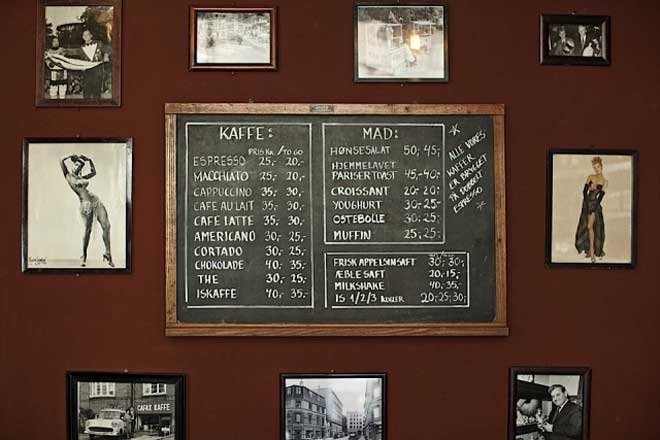 KAFFE:
PRIS KR. / TO GO
ESPRESSO 25,- 20,-
MACCHIATO 25,- 20,-
CAPPUCCINO 35,- 30,-
CAFE AU LAIT 35,- 30,-
CAFE LATTE 35,- 30,-
AMERICANO 30,- 25,-
CORTADO 30,- 25,-
CHOKOLADE 40,- 35,-
THE 30,- 25,-
ISKAFFE 40,- 35,-
MAD:
HØNSESALAT 50,- 45,-
HJEMMELAVET
PARISERTOAST 45,- 40,-
CROISSANT 20,- 20,-
YOUGHURT 30,- 25,-
OSTEBOLLE 30,- 25,-
MUFFIN 25,- 25,-
FRISK APPELSINSAFT 30,- 30,-
ÆBLESAFT 20,- 15,-
MILKSHAKE 40,- 35,-
IS 1/2/3 KUGLER 20,- 25,- 30,-
ALLE VORES
KAFFER
ER BRYGGET
PÅ DOBBELT
ESPRESSO
CAFAX KAFFE